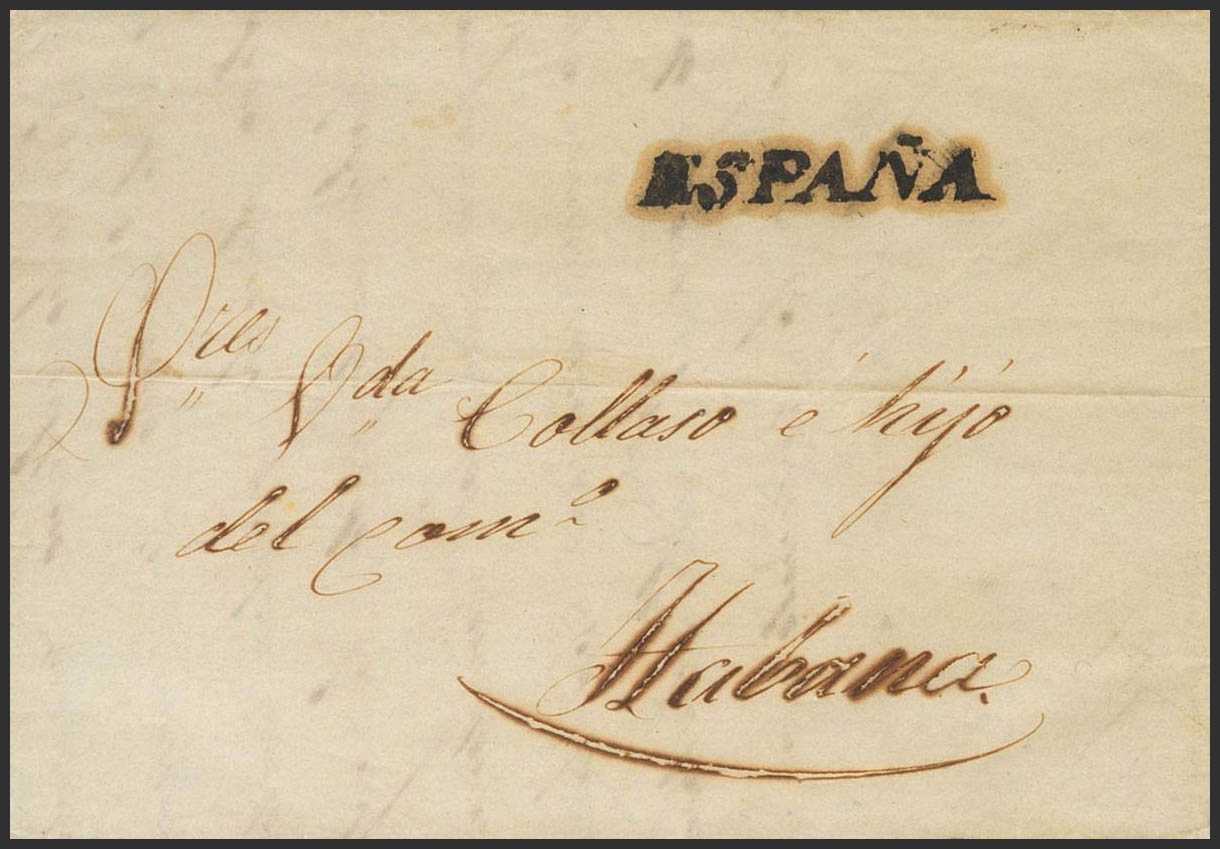 ESPAÑA
Sres Vda Collaso é hijo
del comº
Habana.